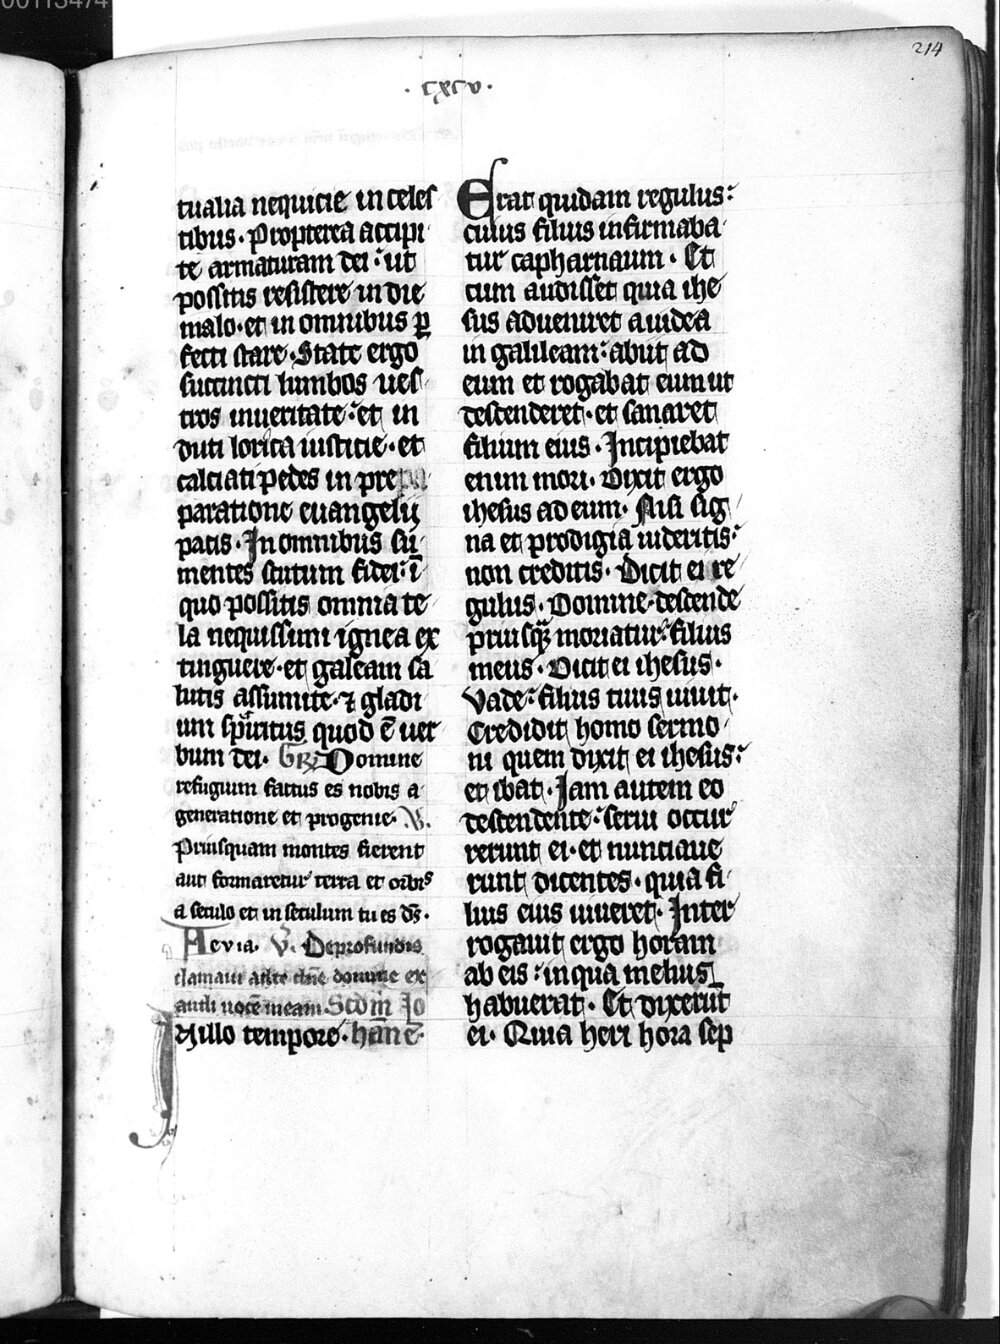 00113474
214
· cxcv ·
tualia nequicie in celes
tibus · Propterea accipi
te armaturam dei : ut
possitis resistere in die
malo · et in omnibus ꝑ
fecti stare · State ergo
succincti lumbos ues
tros in ueritate : et in
duti lorica iusticie · et
calciati pedes in prepa
paratione euangelii
pacis · In omnibus su
mentes scutum fidei : ī
quo possitis omnia te
la nequissimi ignea ex
tinguere · et galeam sa
lutis assumite · ⁊ gladi
um spiritus quod ē uer
bum dei · GR Domine
refugium factus es nobis a
generatione et progenie · V.
Priusquam montes fierent
aut formaretur terra et orbis
a seculo et in seculum tu es ds̄ ·
Aevia · V. De profundis
clamaui ad te dn̄e domine ex
audi uocē meam · Scdm Jo
In illo tempore ·
Erat quidam regulus :
cuius filius infirmaba
tur capharnaum · Et
cum audisset quia ihe
sus adueniret a iudea
in galileam : abiit ad
eum et rogabat eum ut
descenderet · et sanaret
filium eius · Incipiebat
enim mori · Dixit ergo
ihesus ad eum · Nisi sig
na et prodigia uideritis :
non creditis · Dicit ei re
gulus · Domine · descende
priusqꝫ moriatur : filius
meus · Dicit ei ihesus ·
Vade : filius tuus uiuit ·
Credidit homo sermo
ni quem dixit ei ihesus :
et ibat · Jam autem eo
descendente : serui occur
rerunt ei · et nunciaue
runt dicentes · quia fi
lius eius uiueret · Inter
rogauit ergo horam
ab eis : in qua melius
habuerat · Et dixerūt
ei · Quia heri hora sep